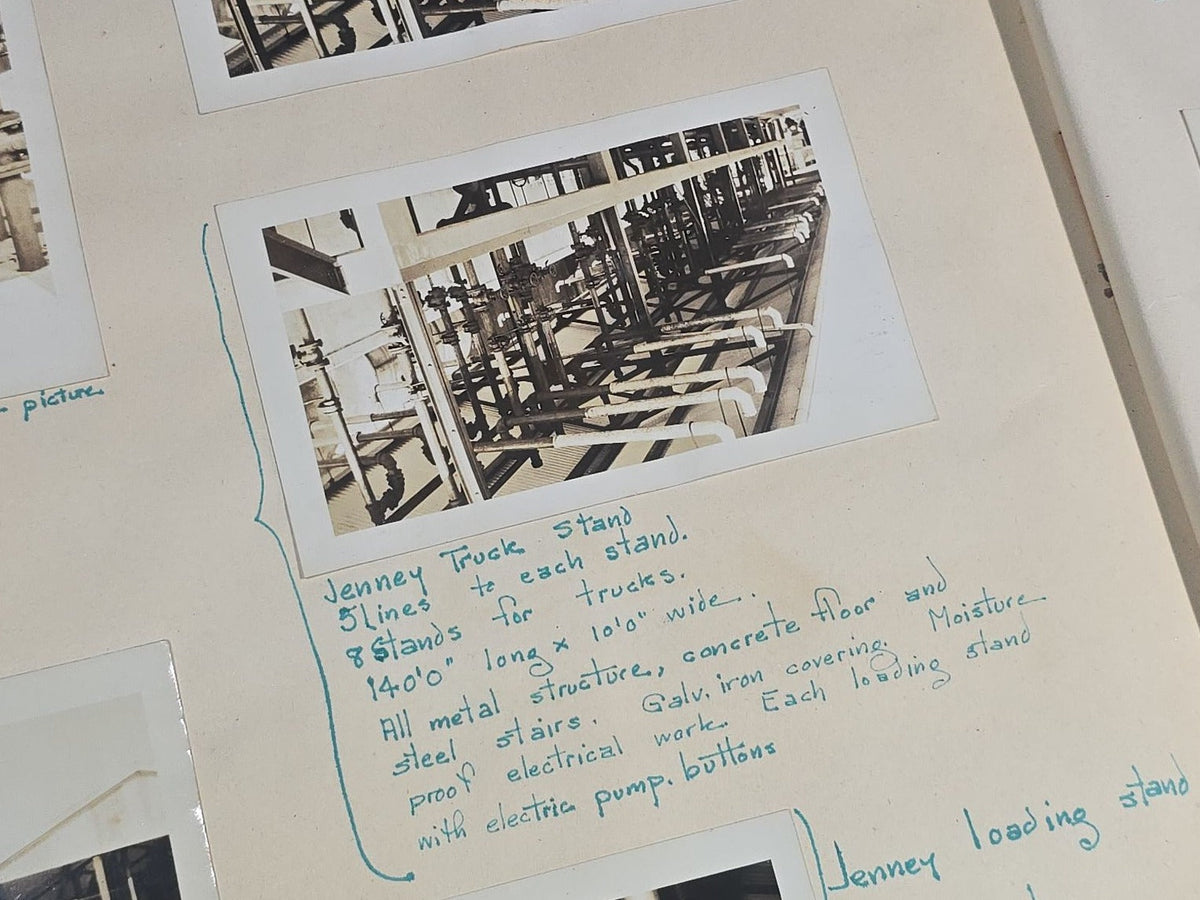 picture
Jenney Truck Stand
5 lines to each stand.
8 Stands for trucks.
140'0" long x 10'0" wide.
All metal structure, concrete floor and
steel stairs. Galv. iron covering. Moisture
proof electrical work. Each loading stand
with electric pump. buttons
Jenney loading stand